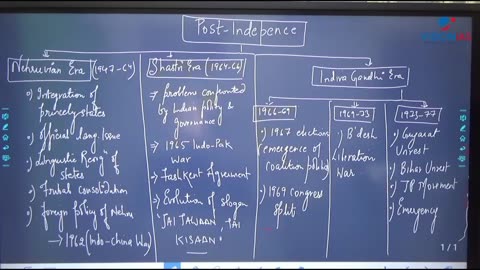 Post-Indepence
Nehruvian Era (1947-64)
→ Integration of
princely states
→ Official lang. Issue
→ Linguistic Reorgⁿ of
states
→ Tribal consolidation
→ Foreign policy of Nehru
→ 1962 (Indo-China War)
Shastri Era (1964-66)
→ problems confronted
by Indian polity &
governance
→ 1965 Indo-Pak
War
→ Tashkent Agreement
→ Evolution of slogan
"JAI JAWAAN, JAI
KISAAN"
Indira Gandhi Era
1966-69
→ 1967 elections
(emergence of
coalition politics)
→ 1969 Congress
Split
1969-73
→ B'desh
Liberation
War
1973-77
→ Gujarat
Unrest
→ Bihar Unrest
→ JP Movement
→ Emergency
1/1